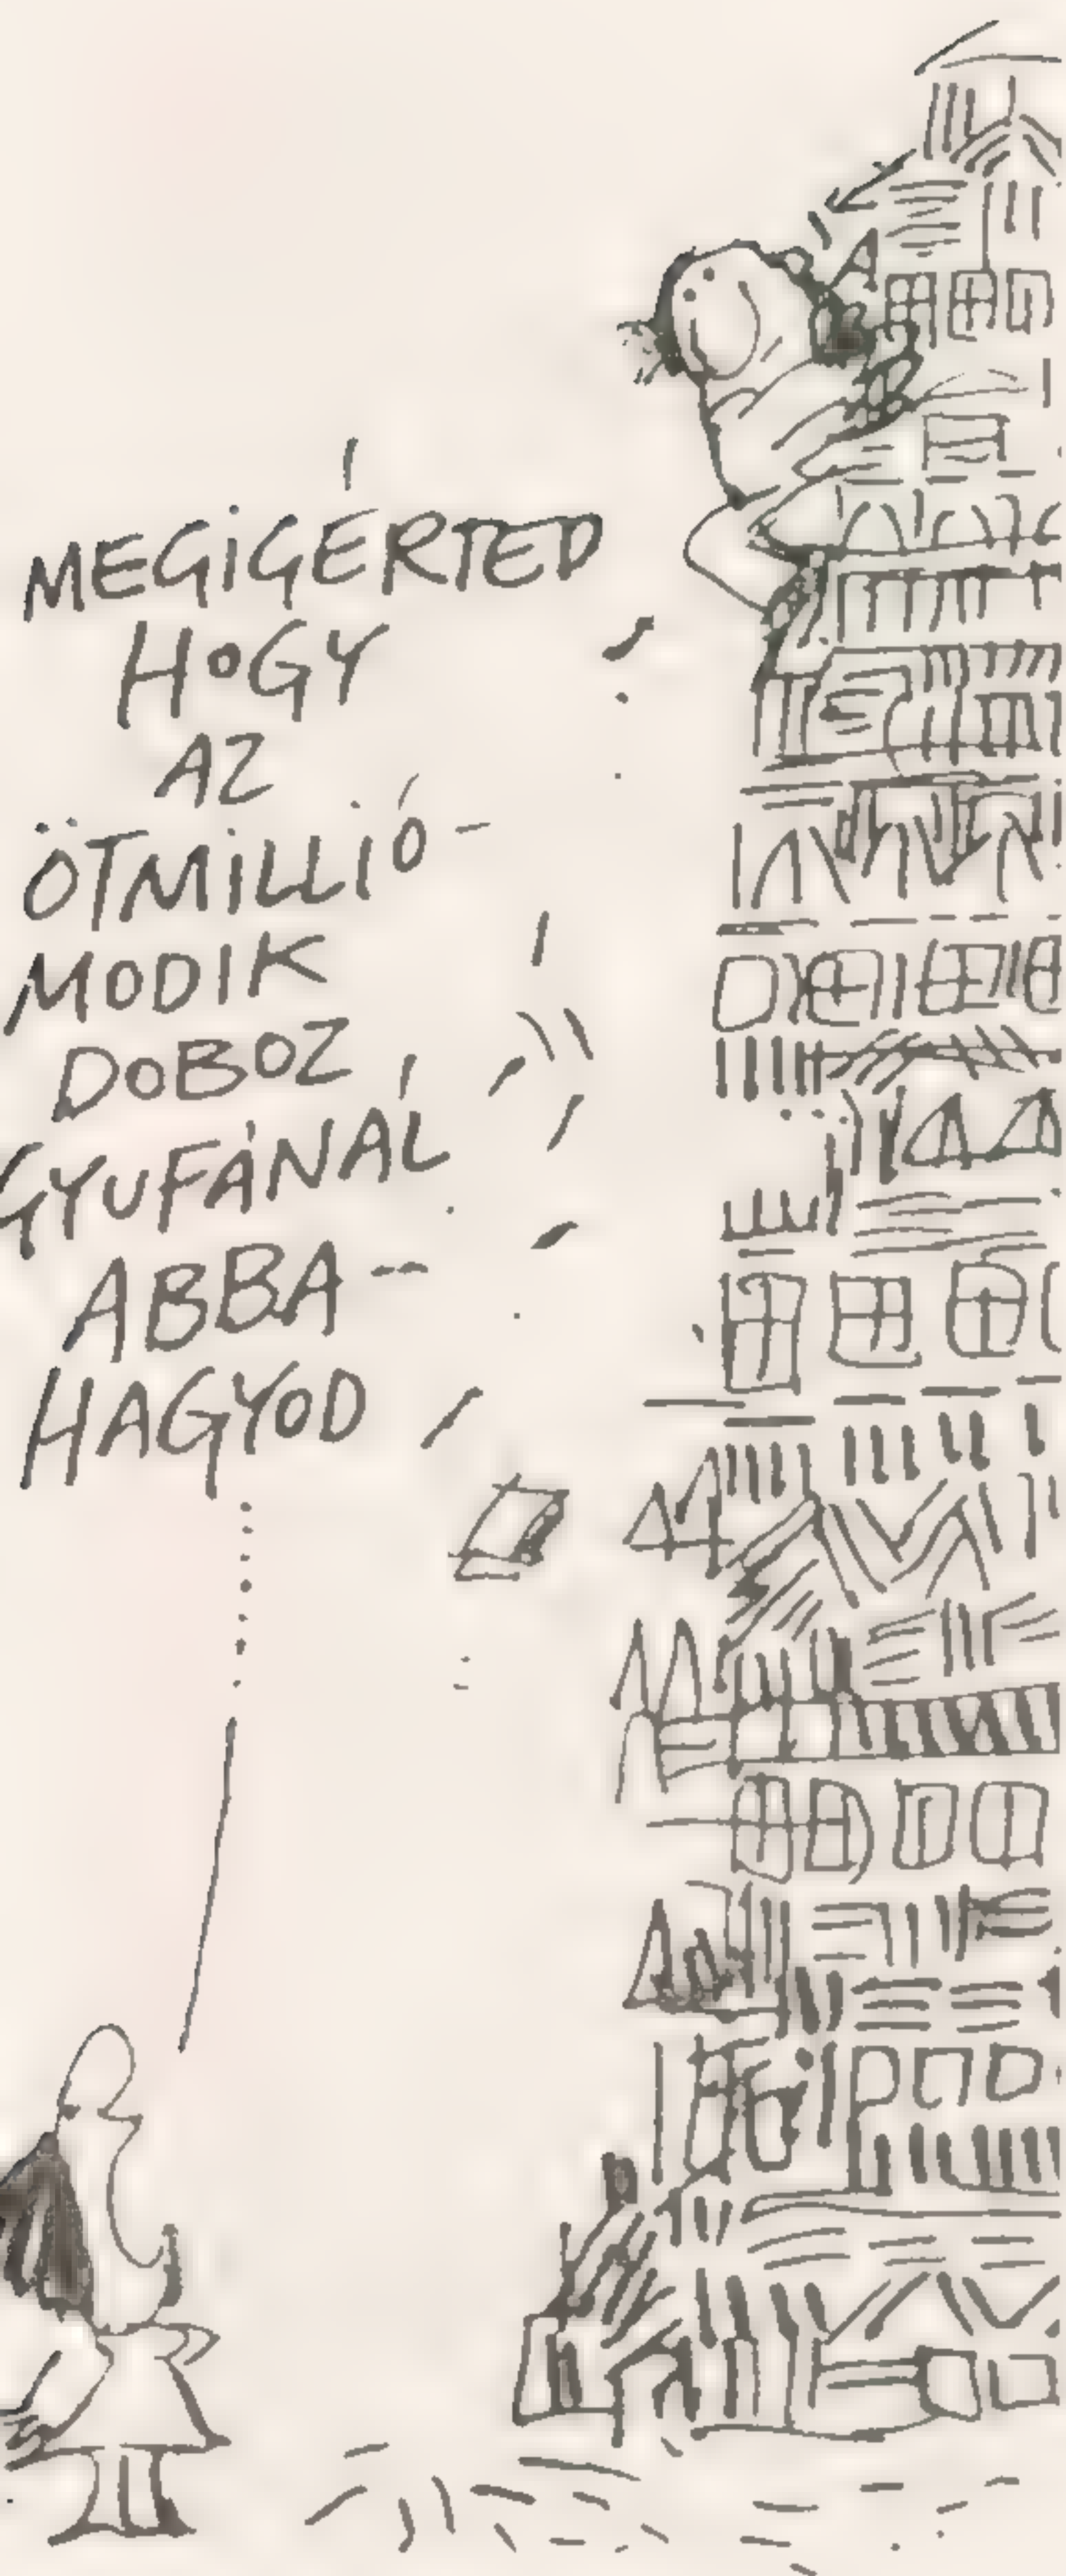 MEGÍGÉRTED
HOGY
AZ
ÖTMILLIÓ-
MODIK
DOBOZ
GYUFÁNÁL
ABBA-
HAGYOD